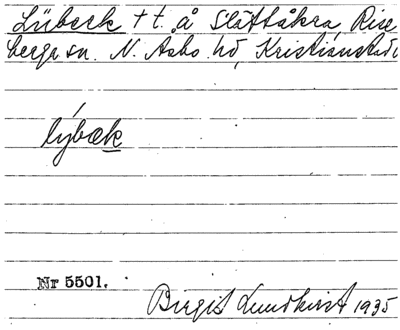 Lübeck † t. å Slättåkra, Rise
berga sn. N. Åsbo hd, Kristianstads
lýbæk
Nr 5501.
Birgit Lundkvist 1935